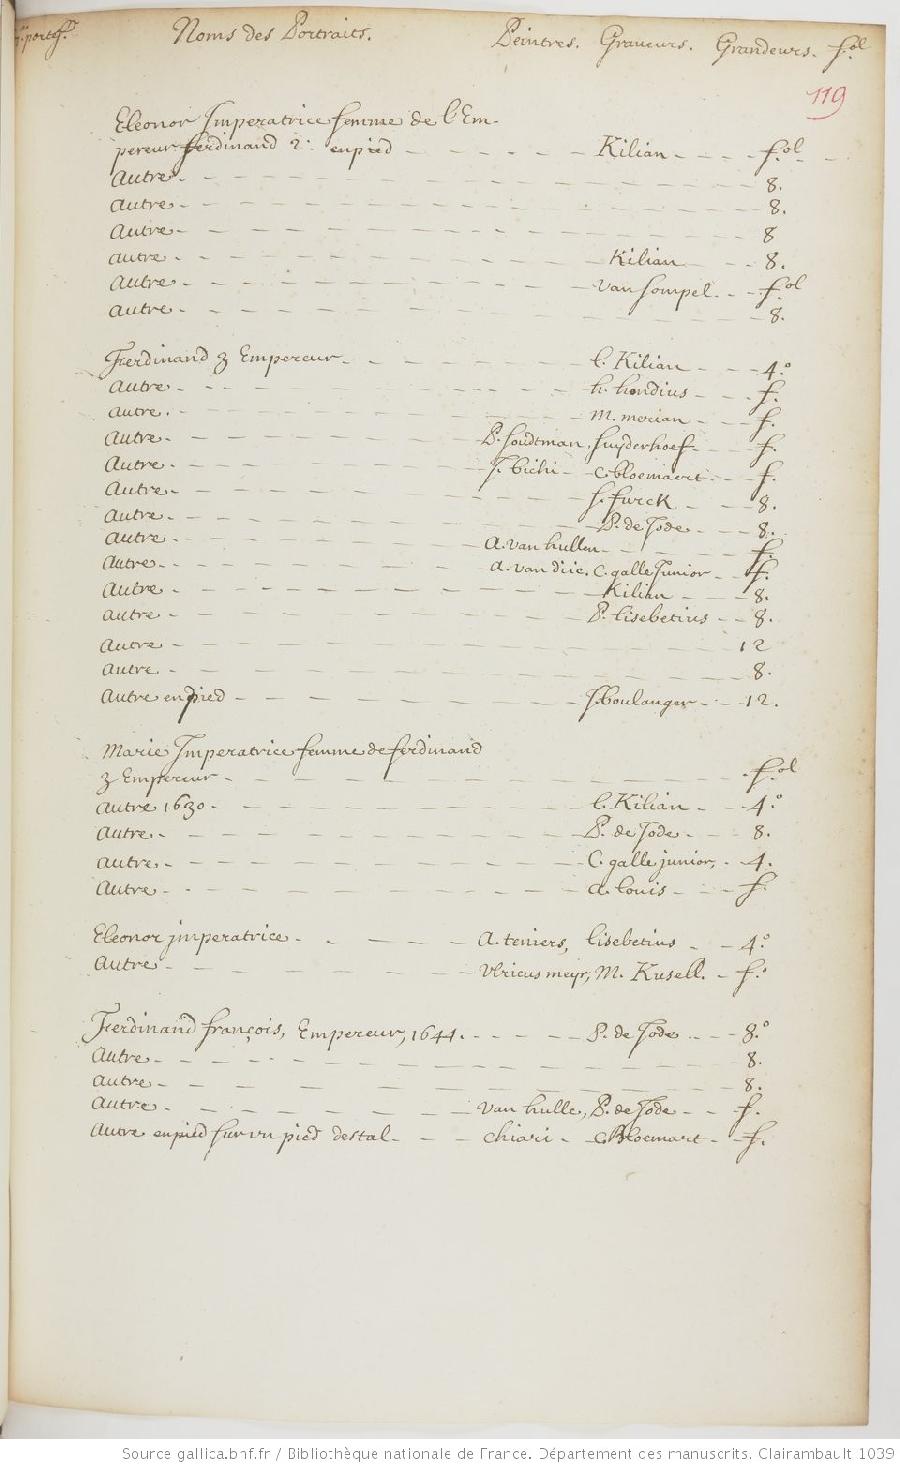 portef. Noms des Portraits. Peintres. Graveurs. Grandeurs. fol
119
Eleonor Imperatrice femme de l'Em-
pereur ferdinand 2: en pied - - - - - Kilian - - - fol
autre - - - - - 8.
autre - - - - - 8.
autre - - - - - 8
autre - - - - - Kilian - - 8.
autre - - - - - van sompel - - fol
autre - - - - - 8.
Ferdinand 3 Empereur - - - - - l. Kilian - - - 4.°
autre - - - - - h. hondius - - f.
autre. - - - - - m. merian - - f.
autre - - - - - P. soudtman, suyderhoef - - f.
autre - - - - - J. bichi - c. bloemaert - - f.
autre - - - - - s. furck - - 8.
autre - - - - - P. de Jode - - 8.
autre - - - - - a. van hullen - - - f.
autre - - - - - a. van diic, c. galle Junior - - f.
autre - - - - - Kilian - - 8.
autre - - - - - P. lisebetius - - 8.
autre - - - - - 12
autre - - - - - 8.
autre en pied - - - - - J. boulanger - - 12.
Marie Imperatrice femme de ferdinand
3 Empereur - - - - - fol
autre 1630 - - - - - l. Kilian - - 4.°
autre - - - - - P. de Jode - - 8.
autre - - - - - C. galle junior, - 4.
autre - - - - - a. louis - - f.
Eleonor jmperatrice - - - - a. teniers, lisebetius - - 4.°
autre - - - - - vlricus meyr, M. Kusell. - f.
Ferdinand françois, Empereur, 1644. - - - - P. de Jode - - 8.°
autre - - - - - 8.
autre - - - - - 8.
autre - - - - - van hulle, P. de Jode - - f.
autre en pied sur vn pied destal - - - chiari - c. Bloemart - f.
Source gallica.bnf.fr / Bibliothèque nationale de France. Département des manuscrits. Clairambault 1039